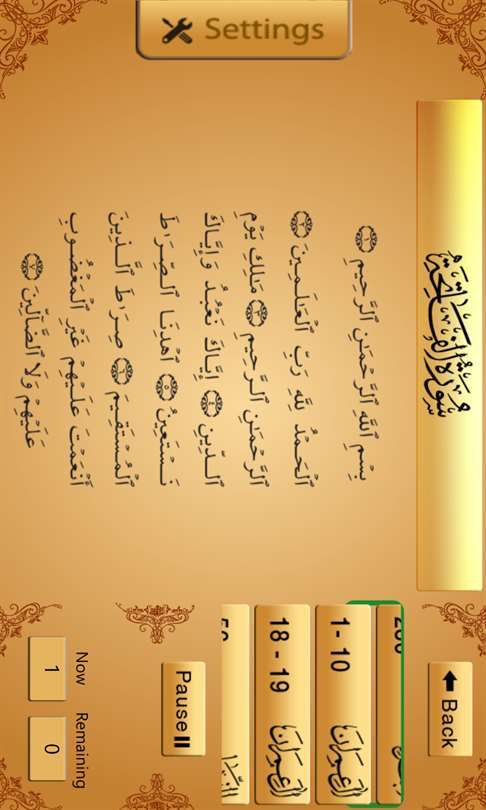 Settings
سُورَةُ الْفَاتِحَةِ
بِسْمِ ٱللَّهِ ٱلرَّحْمَـٰنِ ٱلرَّحِيمِ ﴿١﴾
ٱلْحَمْدُ لِلَّهِ رَبِّ ٱلْعَـٰلَمِينَ ﴿٢﴾
ٱلرَّحْمَـٰنِ ٱلرَّحِيمِ ﴿٣﴾ مَـٰلِكِ يَوْمِ
ٱلدِّينِ ﴿٤﴾ إِيَّاكَ نَعْبُدُ وَإِيَّاكَ
نَسْتَعِينُ ﴿٥﴾ ٱهْدِنَا ٱلصِّرَٰطَ
ٱلْمُسْتَقِيمَ ﴿٦﴾ صِرَٰطَ ٱلَّذِينَ
أَنْعَمْتَ عَلَيْهِمْ غَيْرِ ٱلْمَغْضُوبِ
عَلَيْهِمْ وَلَا ٱلضَّآلِّينَ ﴿٧﴾
Back
1 - 10 آل عمران
18 - 19 آل عمران
Pause
Now Remaining
1 0